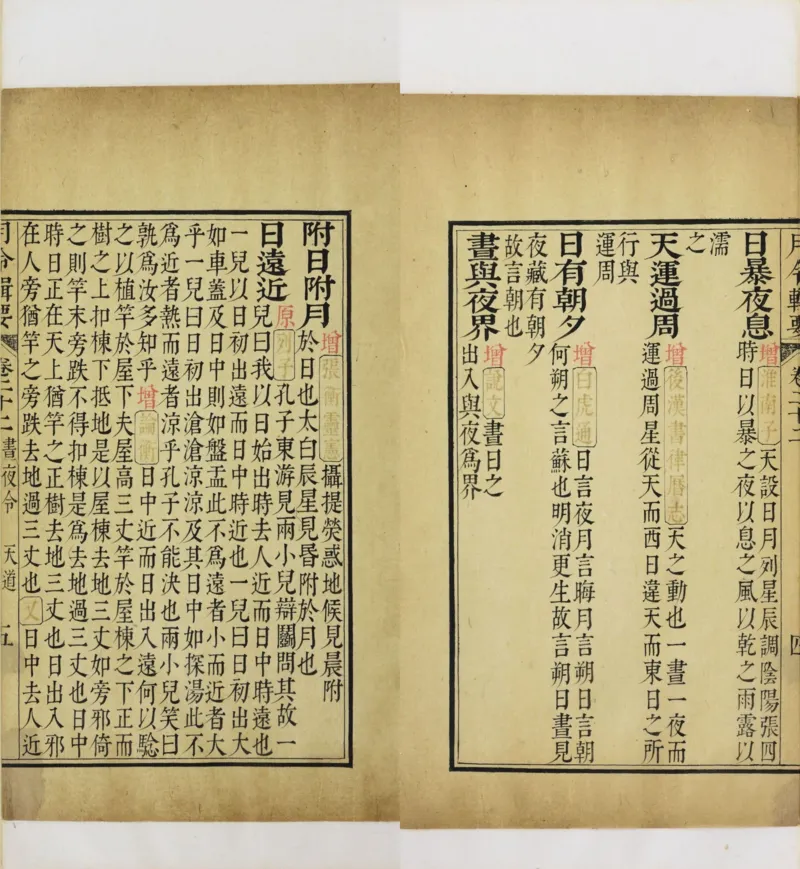 月令輯要 卷二十二 四
日暴夜息 增淮南子天設日月列星辰調陰陽張四
時日以暴之夜以息之風以乾之雨露以
濡
之
天運過周 增後漢書律曆志天之動也一晝一夜而
運過周星從天而西日違天而東日之所
行與
運周
日有朝夕 增白虎通日言夜月言晦月言朔日言朝
何朔之言蘇也明消更生故言朔日晝見
夜藏有朝夕
故言朝也
晝與夜界 增說文晝日之
出入與夜爲界
附日附月 增張衡靈憲攝提熒惑地候見晨附
於日也太白辰星見昏附於月也
日遠近 原列子孔子東游見兩小兒辯鬭問其故一
兒曰我以日始出時去人近而日中時遠也
一兒以日初出遠而日中時近也一兒曰日初出大
如車蓋及日中則如盤盂此不爲遠者小而近者大
乎一兒曰日初出滄滄涼涼及其日中如探湯此不
爲近者熱而遠者涼乎孔子不能決也兩小兒笑曰
孰爲汝多知乎增論衡日中近而日出入遠何以騐
之以植竿於屋下夫屋高三丈竿於屋棟之下正而
樹之上扣棟下抵地是以屋棟去地三丈如旁邪倚
之則竿末旁跌不得扣棟是爲去地過三丈也日中
時日正在天上猶竿之正樹去地三丈也日出入邪
在人旁猶竿之旁跌去地過三丈也又日中去人近
月令輯要 卷二十二 晝夜令 天道 五